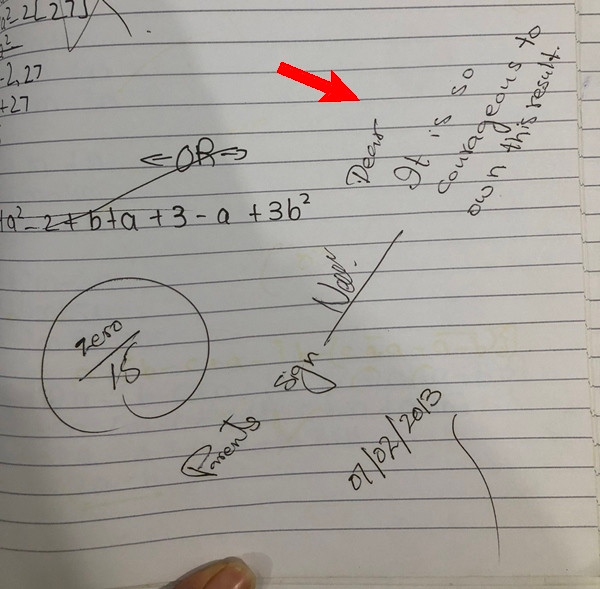 a²-2[27]
a²
-2,27
+27
← OR →
a² - 2 + b + a + 3 - a + 3b²
zero
15
Dear
It is so
courageous to
own this result.
Parents Sign
07/02/2013